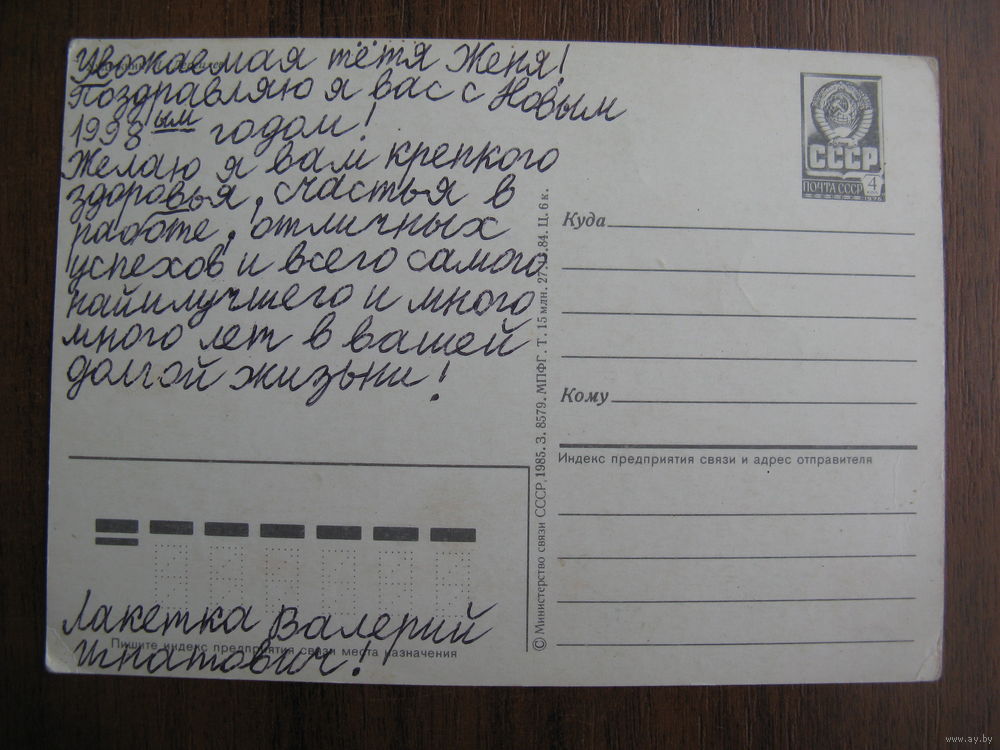 Уважаемая тётя Женя!
Поздравляю я вас с Новым
1998ым годом!
Желаю я вам крепкого
здоровья, счастья в
работе, отличных
успехов и всего самого
найилучшего и много
много лет в вашей
долгой жизьни!
Лакетка Валерий
Игнатович!
Пишите индекс предприятия связи места назначения
© Министерство связи СССР, 1985. З. 8579. МПФГ. Т. 15 млн. 84. Ц. 6 к.
СССР
ПОЧТА СССР 4
1976
Куда
Кому
Индекс предприятия связи и адрес отправителя
www.ay.by